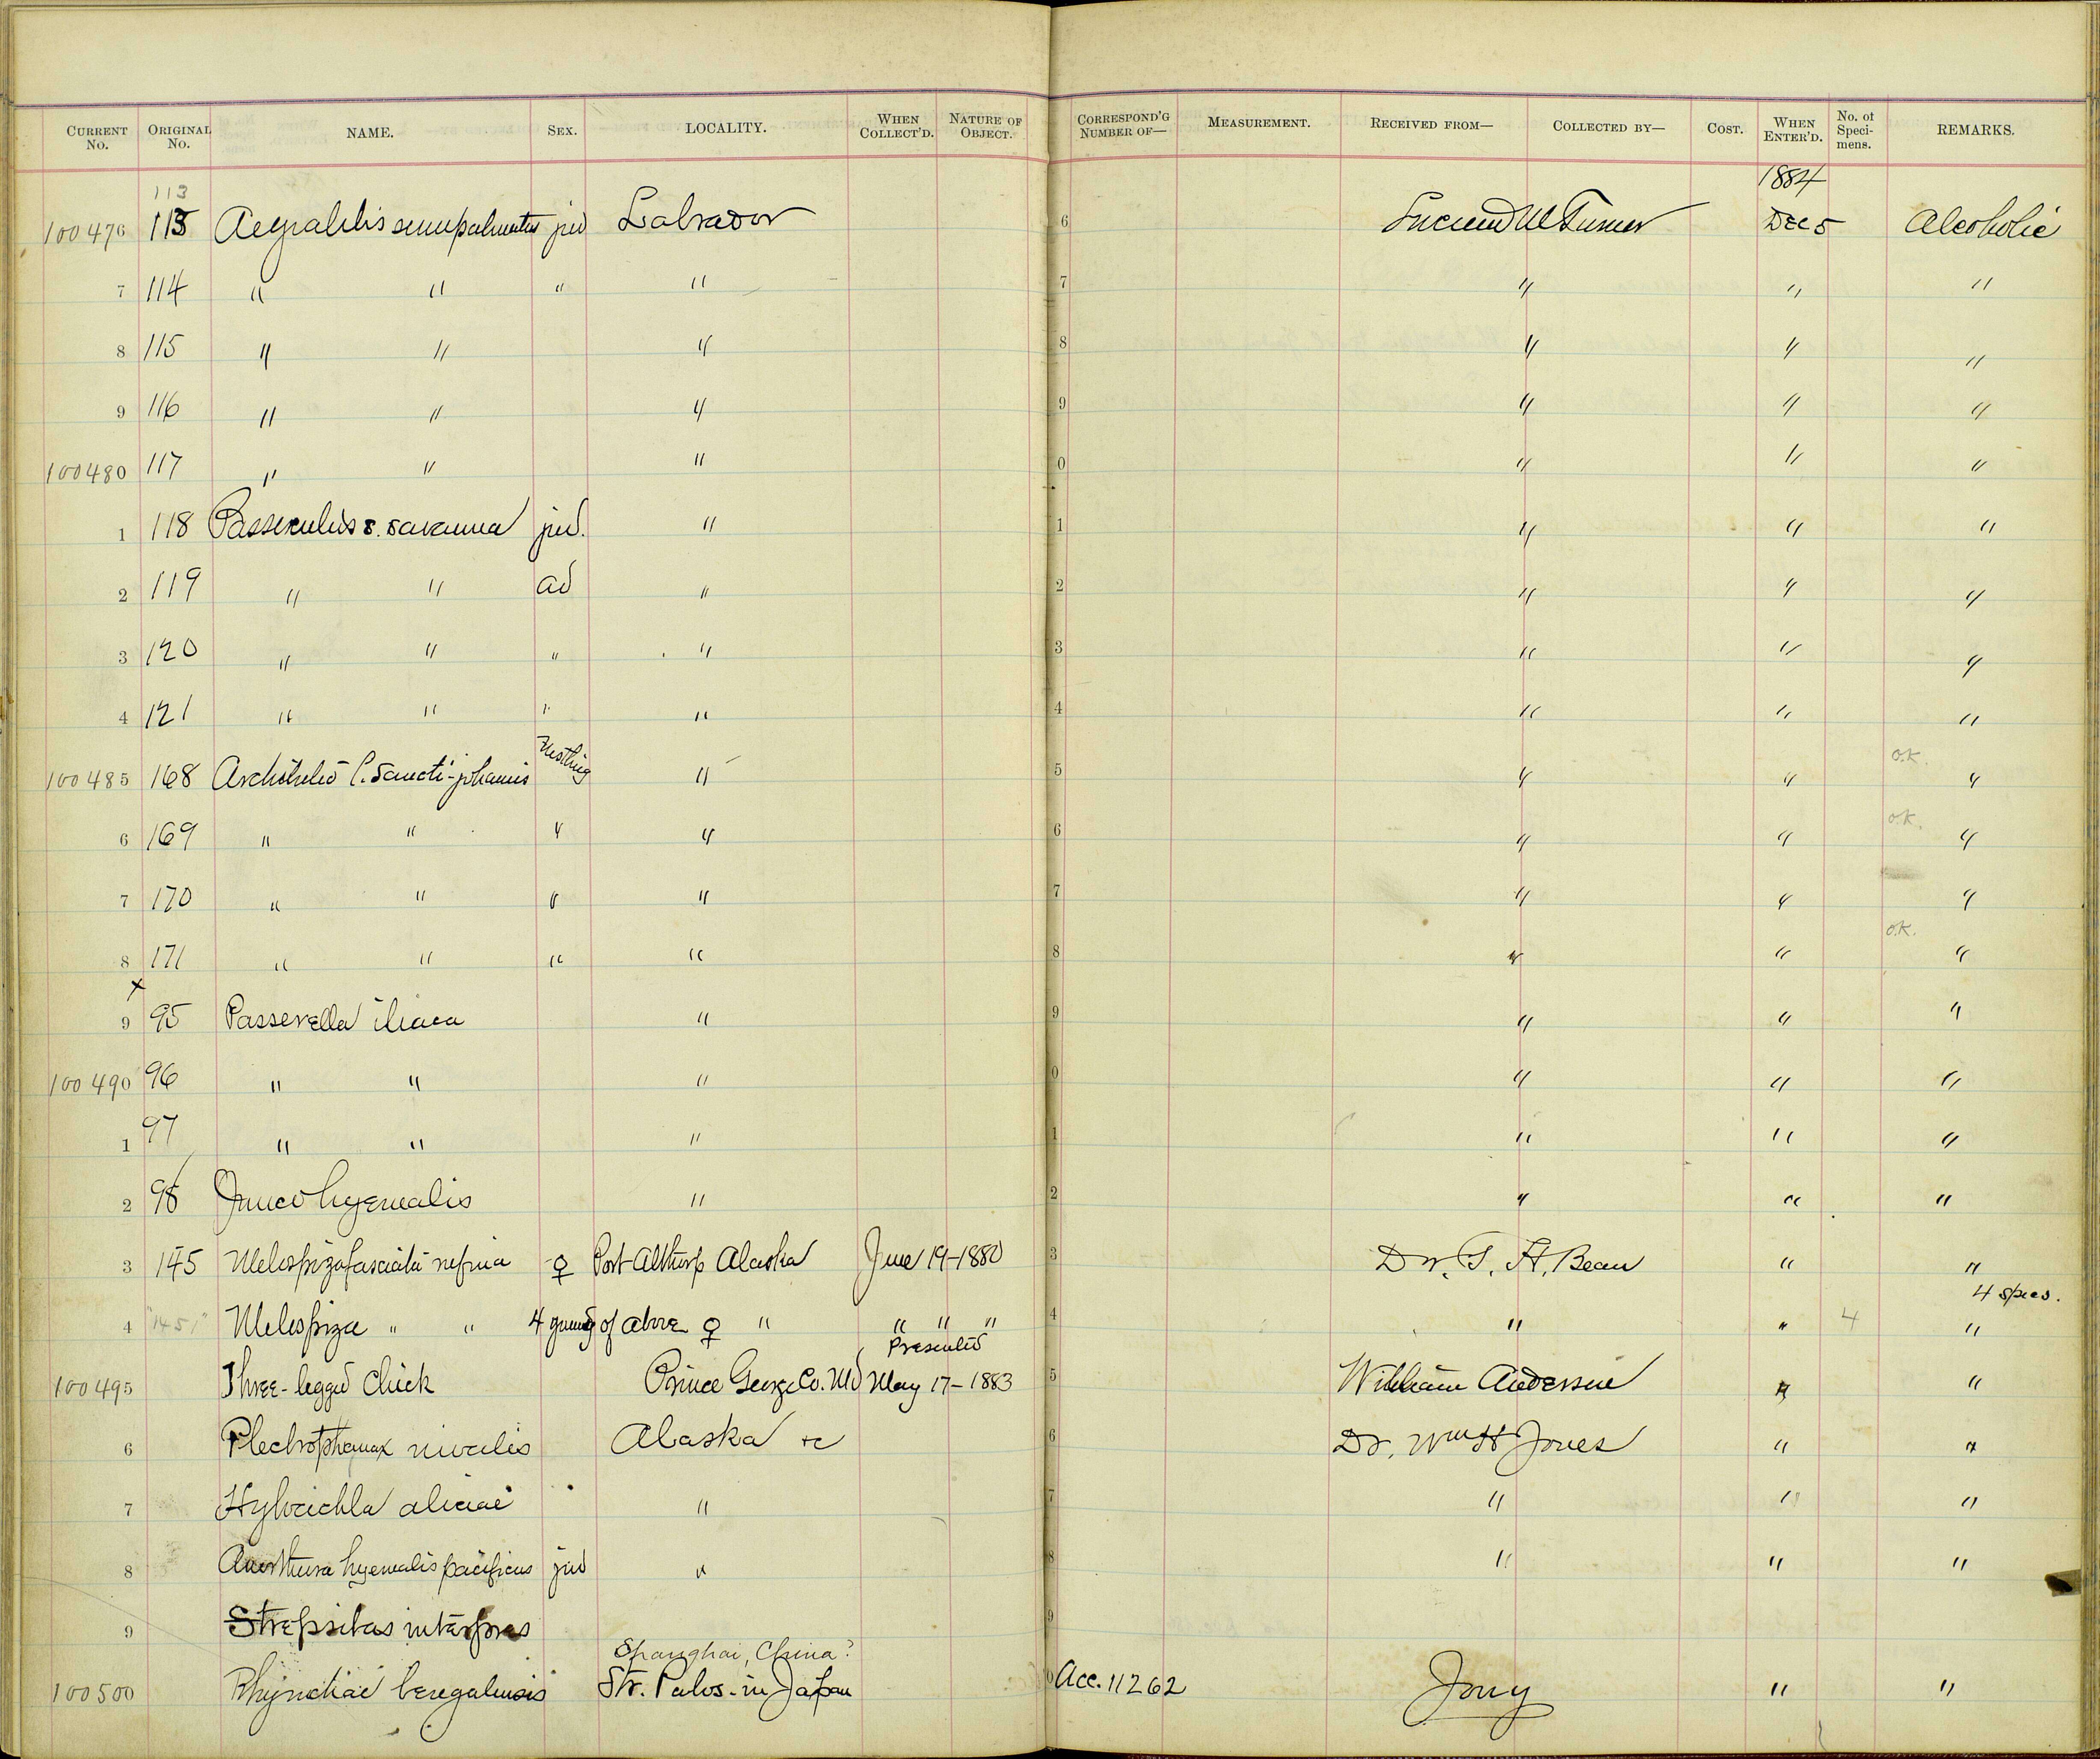 CURRENT No. ORIGINAL No. NAME. SEX. LOCALITY. WHEN COLLECT'D. NATURE OF OBJECT. CORRESPOND'G NUMBER OF— MEASUREMENT. RECEIVED FROM— COLLECTED BY— COST. WHEN ENTER'D. No. of Specimens. REMARKS.
113 1884
100476 113 Aegialitis semipalmatus juv Labrador 6 Lucien M Turner DEC 5 Alcoholic
7 114 " " " " 7 " " "
8 115 " " " 8 " " "
9 116 " " " 9 " " "
100480 117 " " " 0 " " "
1 118 Passerculus s. savanna juv. " 1 " " "
2 119 " " ad " 2 " " "
3 120 " " " " 3 " " "
4 121 " " " " 4 " " "
100485 168 Archibuteo l. sancti-johannis Nestling " 5 " " o.k. "
6 169 " " " " 6 " " o.k. "
7 170 " " " " 7 " " "
8 171 " " " " 8 " " o.k. "
x
9 95 Passerella iliaca " 9 " " "
100490 96 " " " 0 " " "
1 97 " " " 1 " " "
2 98 Junco hyemalis " 2 " " "
3 145 Melospiza fasciata rufina ♀ Port Althorp Alaska June 19-1880 3 Dr. T. H. Bean " "
4 specs.
4 "145" Melospiza " " 4 young of above ♀ " " " " 4 " " 4 "
Presented
100495 Three-legged Chick Prince George Co. Md May 17-1883 5 William Anderson " "
6 Plectrophanax nivalis Alaska &c 6 Dr. Wm H Jones " "
7 Hylocichla aliciae " 7 " " "
8 Anorthura hyemalis pacificus juv " 8 " " "
9 Strepsilas interpres 9
Shanghai, China?
100500 Rhynchaea bengalensis Str. Palos. in Japan 0 Acc. 11262 Jouy " "